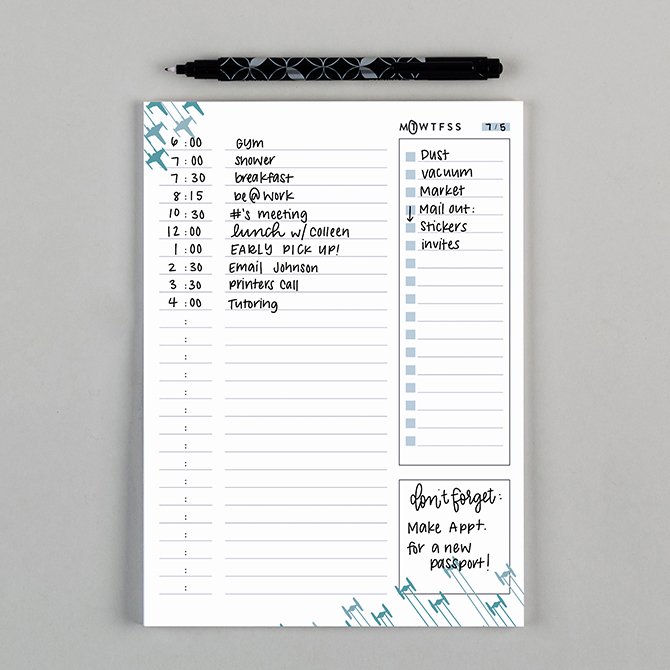 MTWTFSS 7/5
6:00 Gym
7:00 Shower
7:30 breakfast
8:15 be@work
10:30 #'s meeting
12:00 lunch w/ Colleen
1:00 EARLY PICK UP!
2:30 Email Johnson
3:30 printers Call
4:00 Tutoring
Dust
vacuum
Market
↓ Mail out:
Stickers
invites
don't forget:
Make Appt.
for a new
passport!